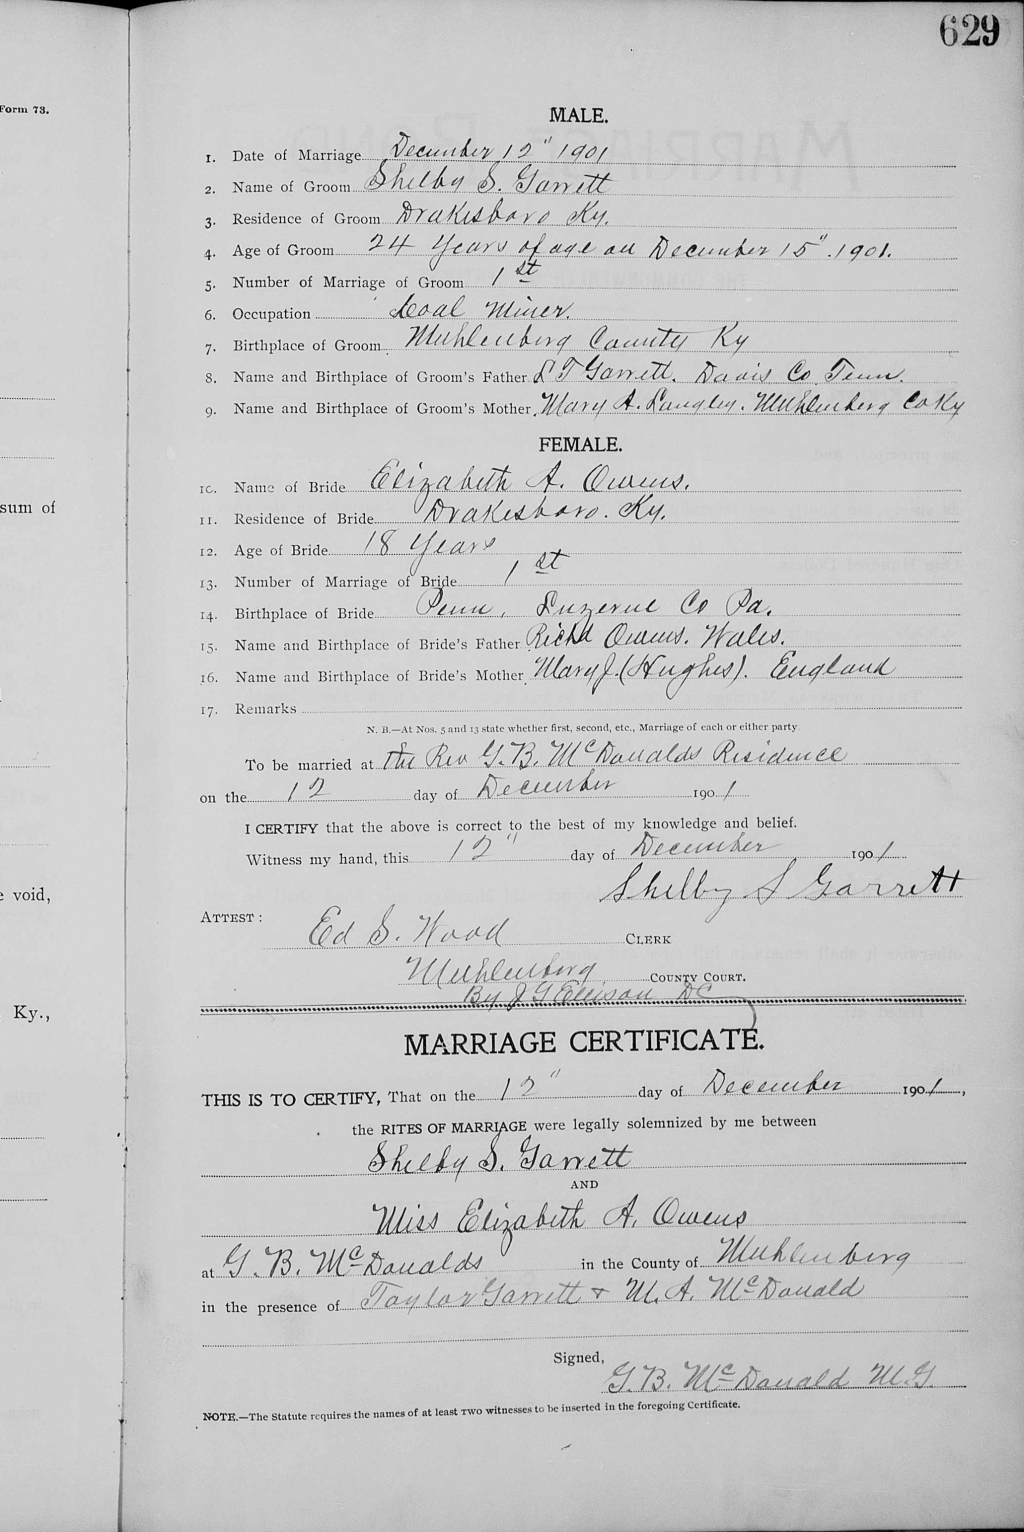 629
Form 73.
MALE.
1. Date of Marriage December 12" 1901
2. Name of Groom Shelby S. Garrett
3. Residence of Groom Drakesboro Ky.
4. Age of Groom 24 Years of age on December 15". 1901.
5. Number of Marriage of Groom 1st
6. Occupation Coal Miner.
7. Birthplace of Groom Muhlenberg County Ky
8. Name and Birthplace of Groom's Father L T Garrett. Davis Co. Tenn.
9. Name and Birthplace of Groom's Mother Mary A. Langley. Muhlenberg Co Ky
FEMALE.
10. Name of Bride Elizabeth A. Owens.
11. Residence of Bride Drakesboro. Ky.
12. Age of Bride 18 Years
13. Number of Marriage of Bride 1st
14. Birthplace of Bride Penn, Luzerne Co Pa.
15. Name and Birthplace of Bride's Father Richd Owens. Wales.
16. Name and Birthplace of Bride's Mother Mary J. (Hughes). England
17. Remarks
N. B.—At Nos. 5 and 13 state whether first, second, etc., Marriage of each or either party.
To be married at the Rev G. B. McDonalds Residence
on the 12 day of December 1901
I CERTIFY that the above is correct to the best of my knowledge and belief.
Witness my hand, this 12" day of December 1901
Shelby S Garrett
ATTEST:
Ed S. Wood CLERK
Muhlenberg COUNTY COURT.
By J G Ellison DC
MARRIAGE CERTIFICATE.
THIS IS TO CERTIFY, That on the 12" day of December 1901,
the RITES OF MARRIAGE were legally solemnized by me between
Shelby S. Garrett
AND
Miss Elizabeth A. Owens
at G. B. McDonalds in the County of Muhlenberg
in the presence of Taylor Garrett + M. A. McDonald
Signed,
G. B. McDonald M.G.
NOTE.—The Statute requires the names of at least TWO witnesses to be inserted in the foregoing Certificate.
sum of
void,
Ky.,